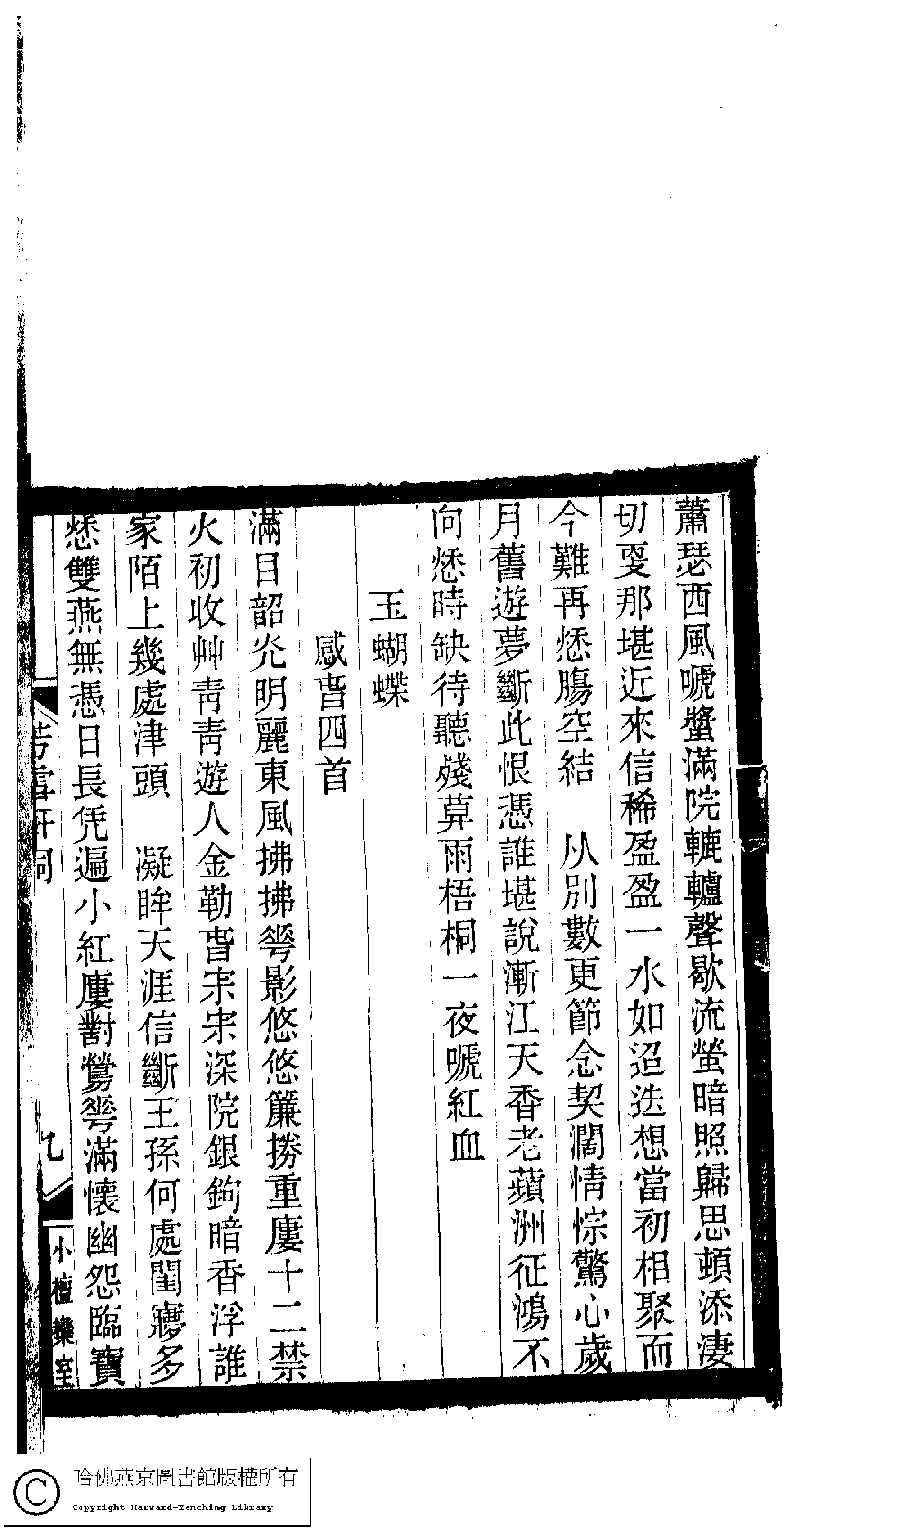 蕭瑟西風嗁螿滿院轆轤聲歇流螢暗照歸思頓添淒
切㪅那堪近來信稀盈盈一水如迢迭想當初相聚而
今難再愁腸空結　从別數更節念契濶情悰驚心歲
月舊遊夢斷此恨憑誰堪說漸江天香老蘋洲征鴻不
向愁時缺待聽殘莫雨梧桐一夜嗁紅血
玉蝴蝶
感昔四首
滿目韶光明麗東風拂拂㸦影悠悠簾牓重廔十二禁
火初收艸靑靑遊人金勒昔宋宋深院銀鉤暗香浮誰
家陌上幾處津頭　凝眸天涯信斷王孫何處閨㝱多
愁雙燕無憑日長凭遍小紅廔對鶯㸦滿懷幽怨臨寶
芳雪軒詞
九
小檀欒室
哈佛燕京圖書館版權所有
Copyright Harvard-Yenching Library